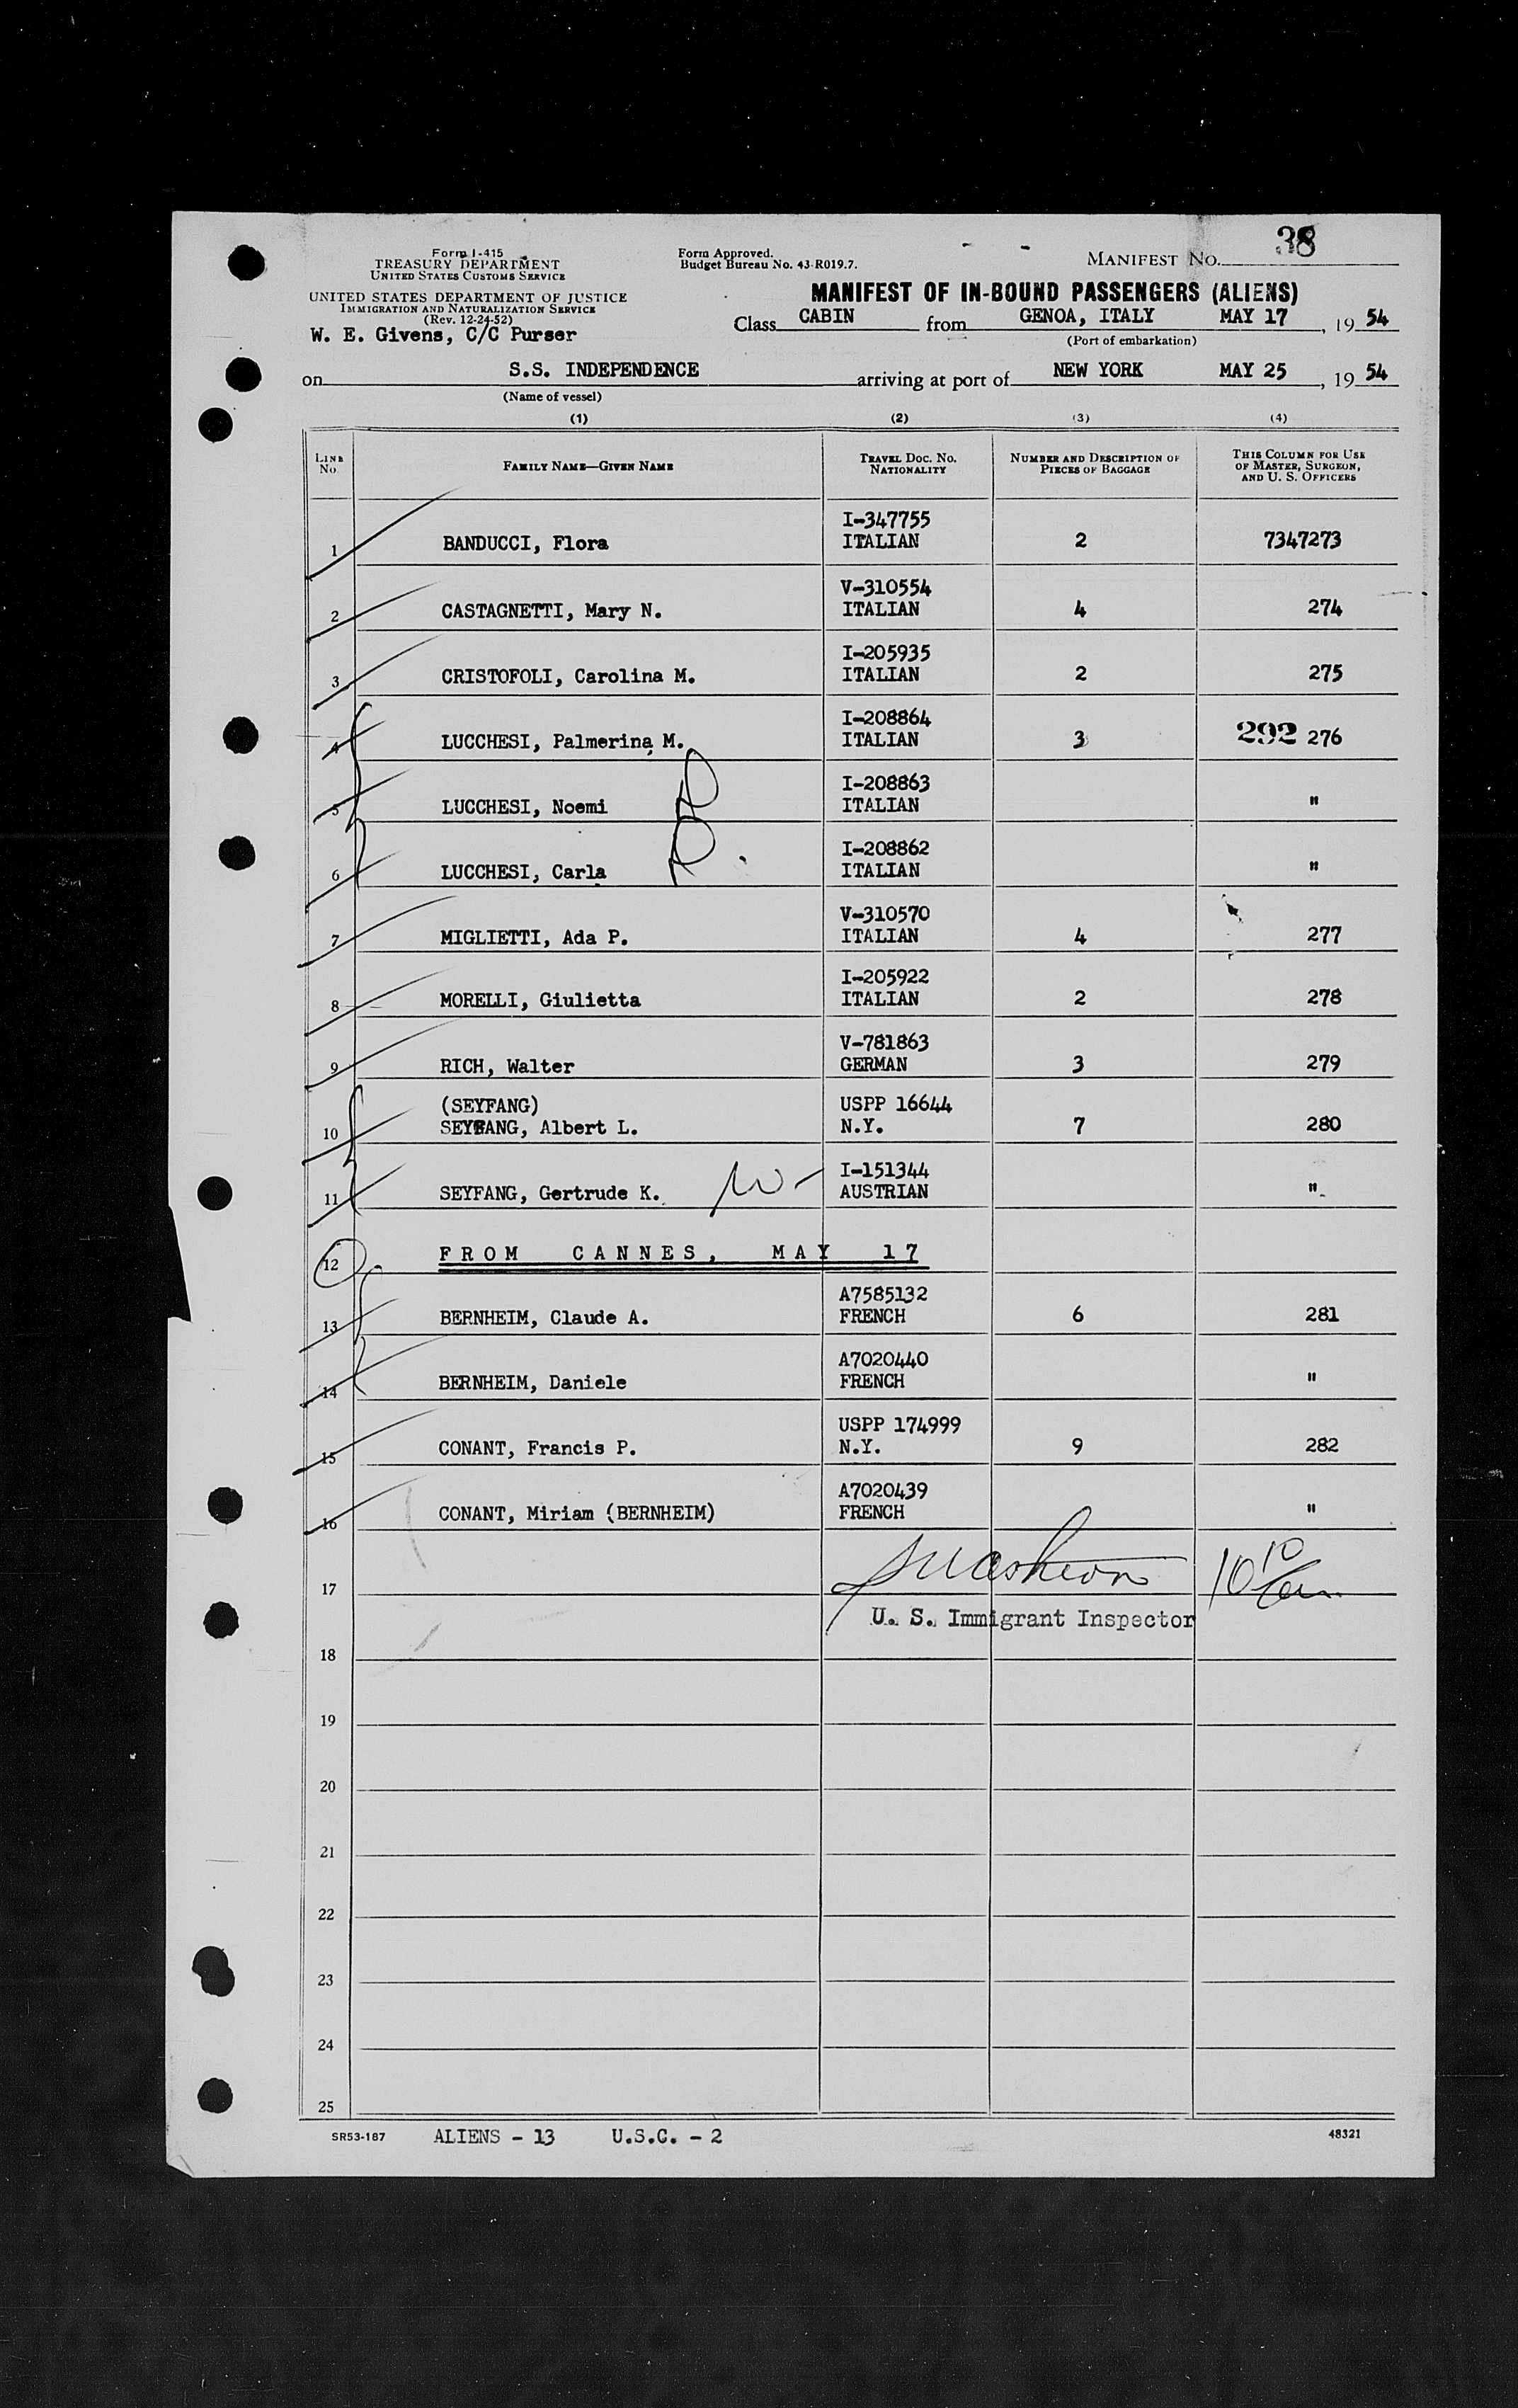 38
Form I-415
TREASURY DEPARTMENT
UNITED STATES CUSTOMS SERVICE
Form Approved.
Budget Bureau No. 43-R019.7.
MANIFEST NO.
UNITED STATES DEPARTMENT OF JUSTICE
IMMIGRATION AND NATURALIZATION SERVICE
(Rev. 12-24-52)
W. E. Givens, C/C Purser
MANIFEST OF IN-BOUND PASSENGERS (ALIENS)
Class CABIN from GENOA, ITALY MAY 17, 19 54
(Port of embarkation)
on S.S. INDEPENDENCE arriving at port of NEW YORK MAY 25, 19 54
(Name of vessel)
(1) (2) (3) (4)
LINE No. FAMILY NAME—GIVEN NAME TRAVEL DOC. NO. NATIONALITY NUMBER AND DESCRIPTION OF PIECES OF BAGGAGE THIS COLUMN FOR USE OF MASTER, SURGEON, AND U. S. OFFICERS
I-347755
1 BANDUCCI, Flora ITALIAN 2 7347273
V-310554
2 CASTAGNETTI, Mary N. ITALIAN 4 274
I-205935
3 CRISTOFOLI, Carolina M. ITALIAN 2 275
I-208864
4 LUCCHESI, Palmerina M. ITALIAN 3 292 276
I-208863
5 LUCCHESI, Noemi ITALIAN "
I-208862
6 LUCCHESI, Carla ITALIAN "
V-310570
7 MIGLIETTI, Ada P. ITALIAN 4 277
I-205922
8 MORELLI, Giulietta ITALIAN 2 278
V-781863
9 RICH, Walter GERMAN 3 279
(SEYFANG) USPP 16644
10 SEYSANG, Albert L. N.Y. 7 280
I-151344
11 SEYFANG, Gertrude K. AUSTRIAN "
12 FROM CANNES, MAY 17
A7585132
13 BERNHEIM, Claude A. FRENCH 6 281
A7020440
14 BERNHEIM, Daniele FRENCH "
USPP 174999
15 CONANT, Francis P. N.Y. 9 282
A7020439
16 CONANT, Miriam (BERNHEIM) FRENCH "
17
U. S. Immigrant Inspector
18
19
20
21
22
23
24
25
SR53-187 ALIENS - 13 U.S.C. - 2 48321